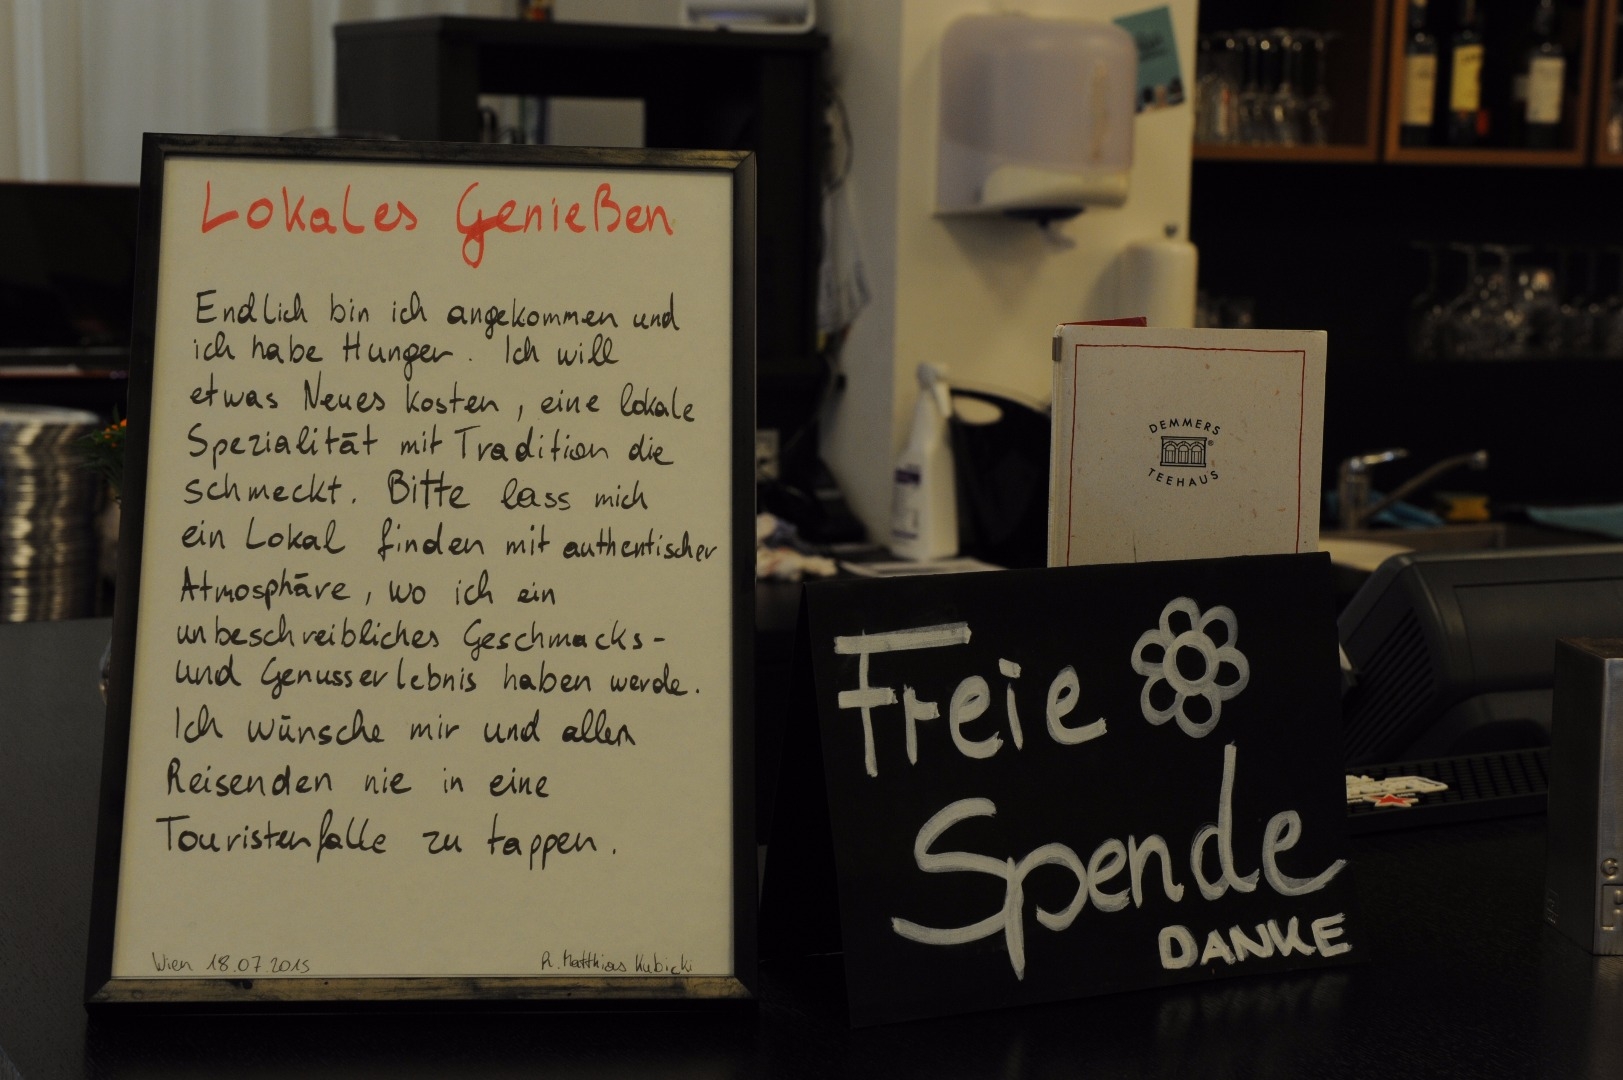 Lokales Genießen
Endlich bin ich angekommen und
ich habe Hunger. Ich will
etwas Neues kosten, eine lokale
Spezialität mit Tradition die
schmeckt. Bitte lass mich
ein Lokal finden mit authentischer
Atmosphäre, wo ich ein
unbeschreibliches Geschmacks-
und Genusserlebnis haben werde.
Ich wünsche mir und allen
Reisenden nie in eine
Touristenfalle zu tappen.
Wien 18.07.2015
R. Matthias Kubicki
DEMMERS
TEEHAUS
Freie
Spende
DANKE